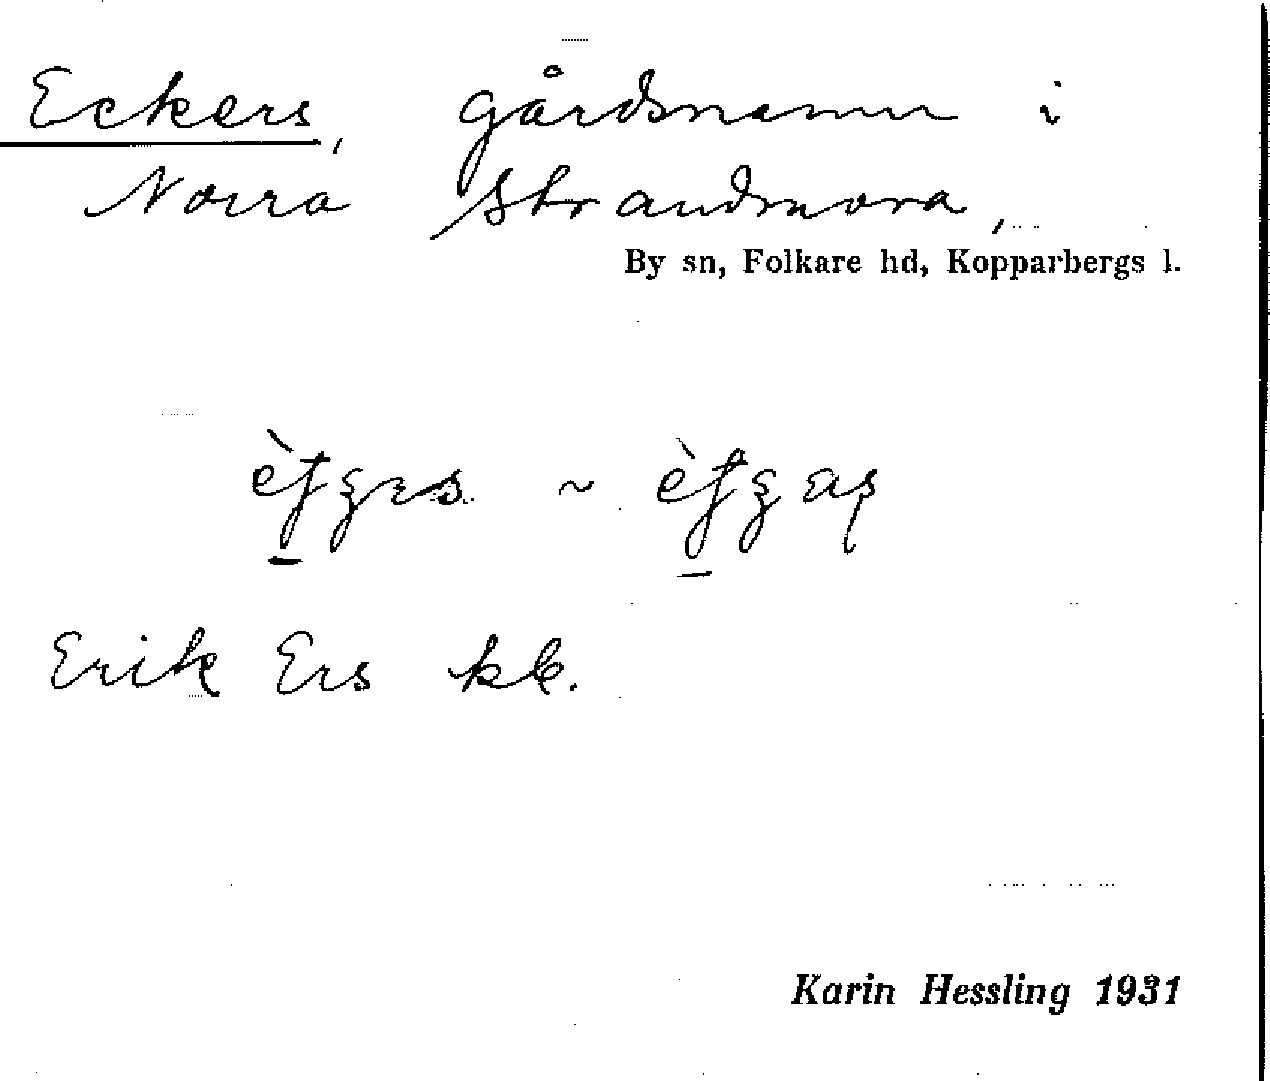 Eckers, gårdsnamn i
Norra Strandmora,
By sn, Folkare hd, Kopparbergs l.
~
Erik Ers kk.
Karin Hessling 1931